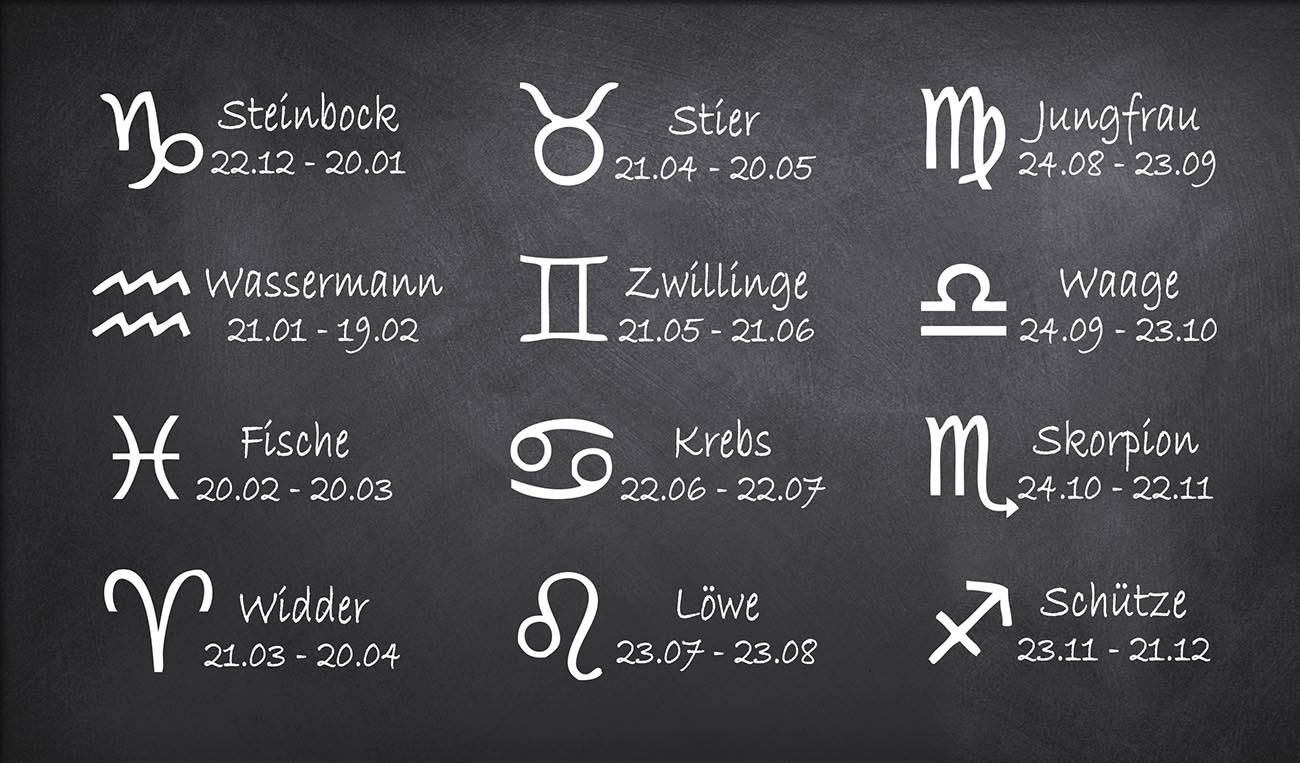 Steinbock
22.12 - 20.01
Wassermann
21.01 - 19.02
Fische
20.02 - 20.03
Widder
21.03 - 20.04
Stier
21.04 - 20.05
Zwillinge
21.05 - 21.06
Krebs
22.06 - 22.07
Löwe
23.07 - 23.08
Jungfrau
24.08 - 23.09
Waage
24.09 - 23.10
Skorpion
24.10 - 22.11
Schütze
23.11 - 21.12